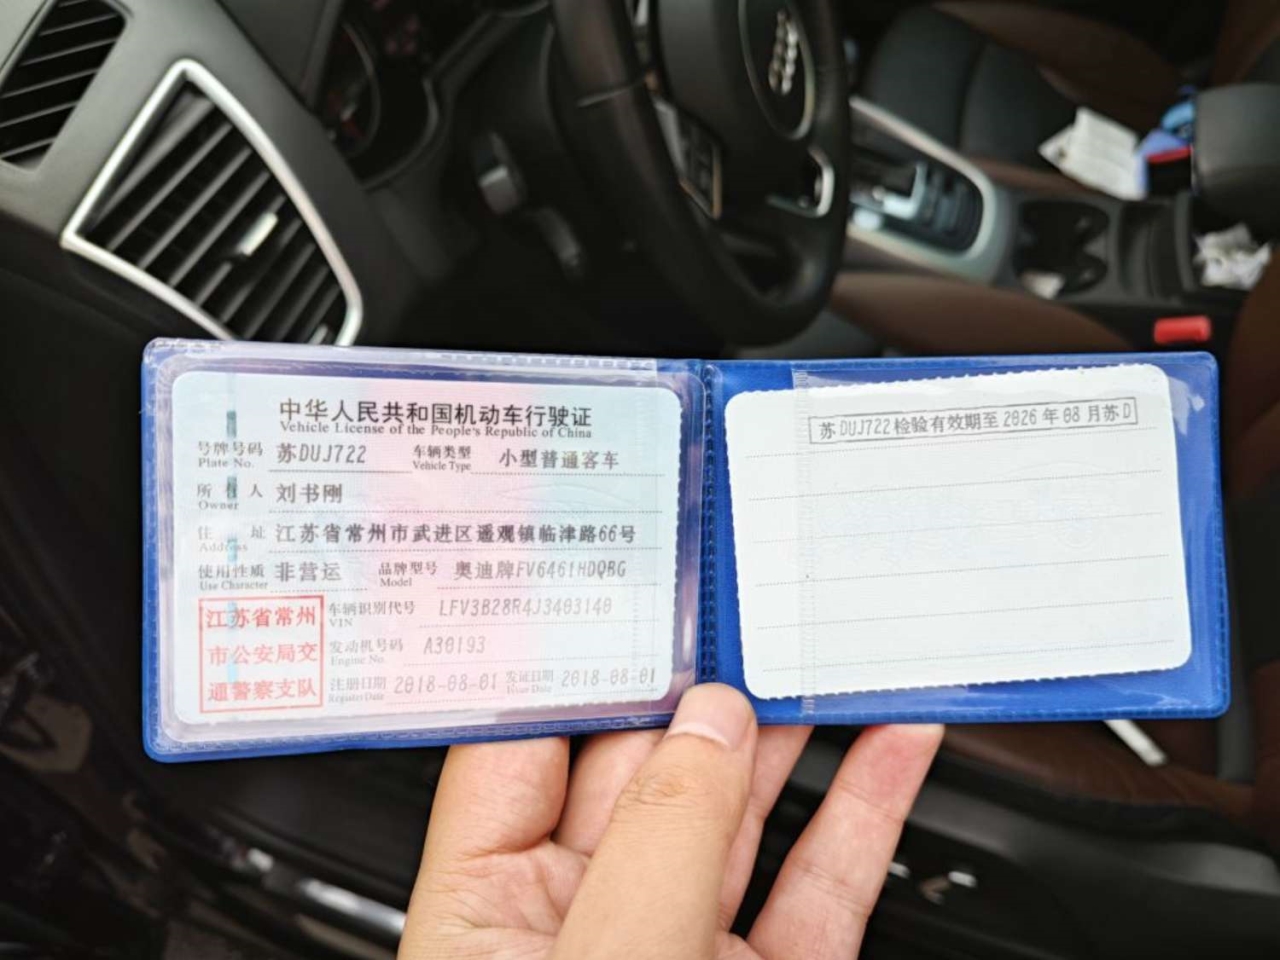 中华人民共和国机动车行驶证
Vehicle License of the People's Republic of China
号牌号码 苏DUJ722 车辆类型 小型普通客车
Plate No. Vehicle Type
所有人 刘书刚
Owner
住址 江苏省常州市武进区遥观镇临津路66号
Address
使用性质 非营运 品牌型号 奥迪牌FV6461HDQBG
Use Character Model
江苏省常州
市公安局交
通警察支队
车辆识别代号 LFV3B28R4J3403140
VIN
发动机号码 A30193
Engine No.
注册日期 2018-08-01 发证日期 2018-08-01
Register Date Issue Date
苏DUJ722检验有效期至2026年08月苏D